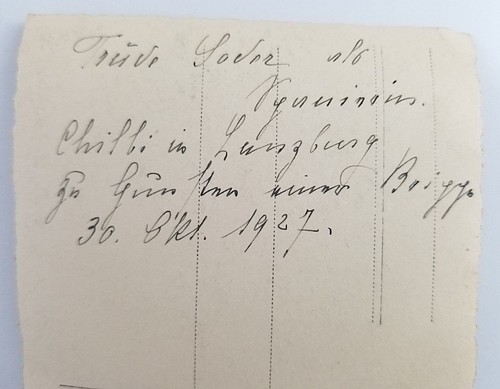 Trude Soder als
Spanierin.
Chilbi in Lenzburg
zu Gunsten einer Krippe
30. Okt. 1927.